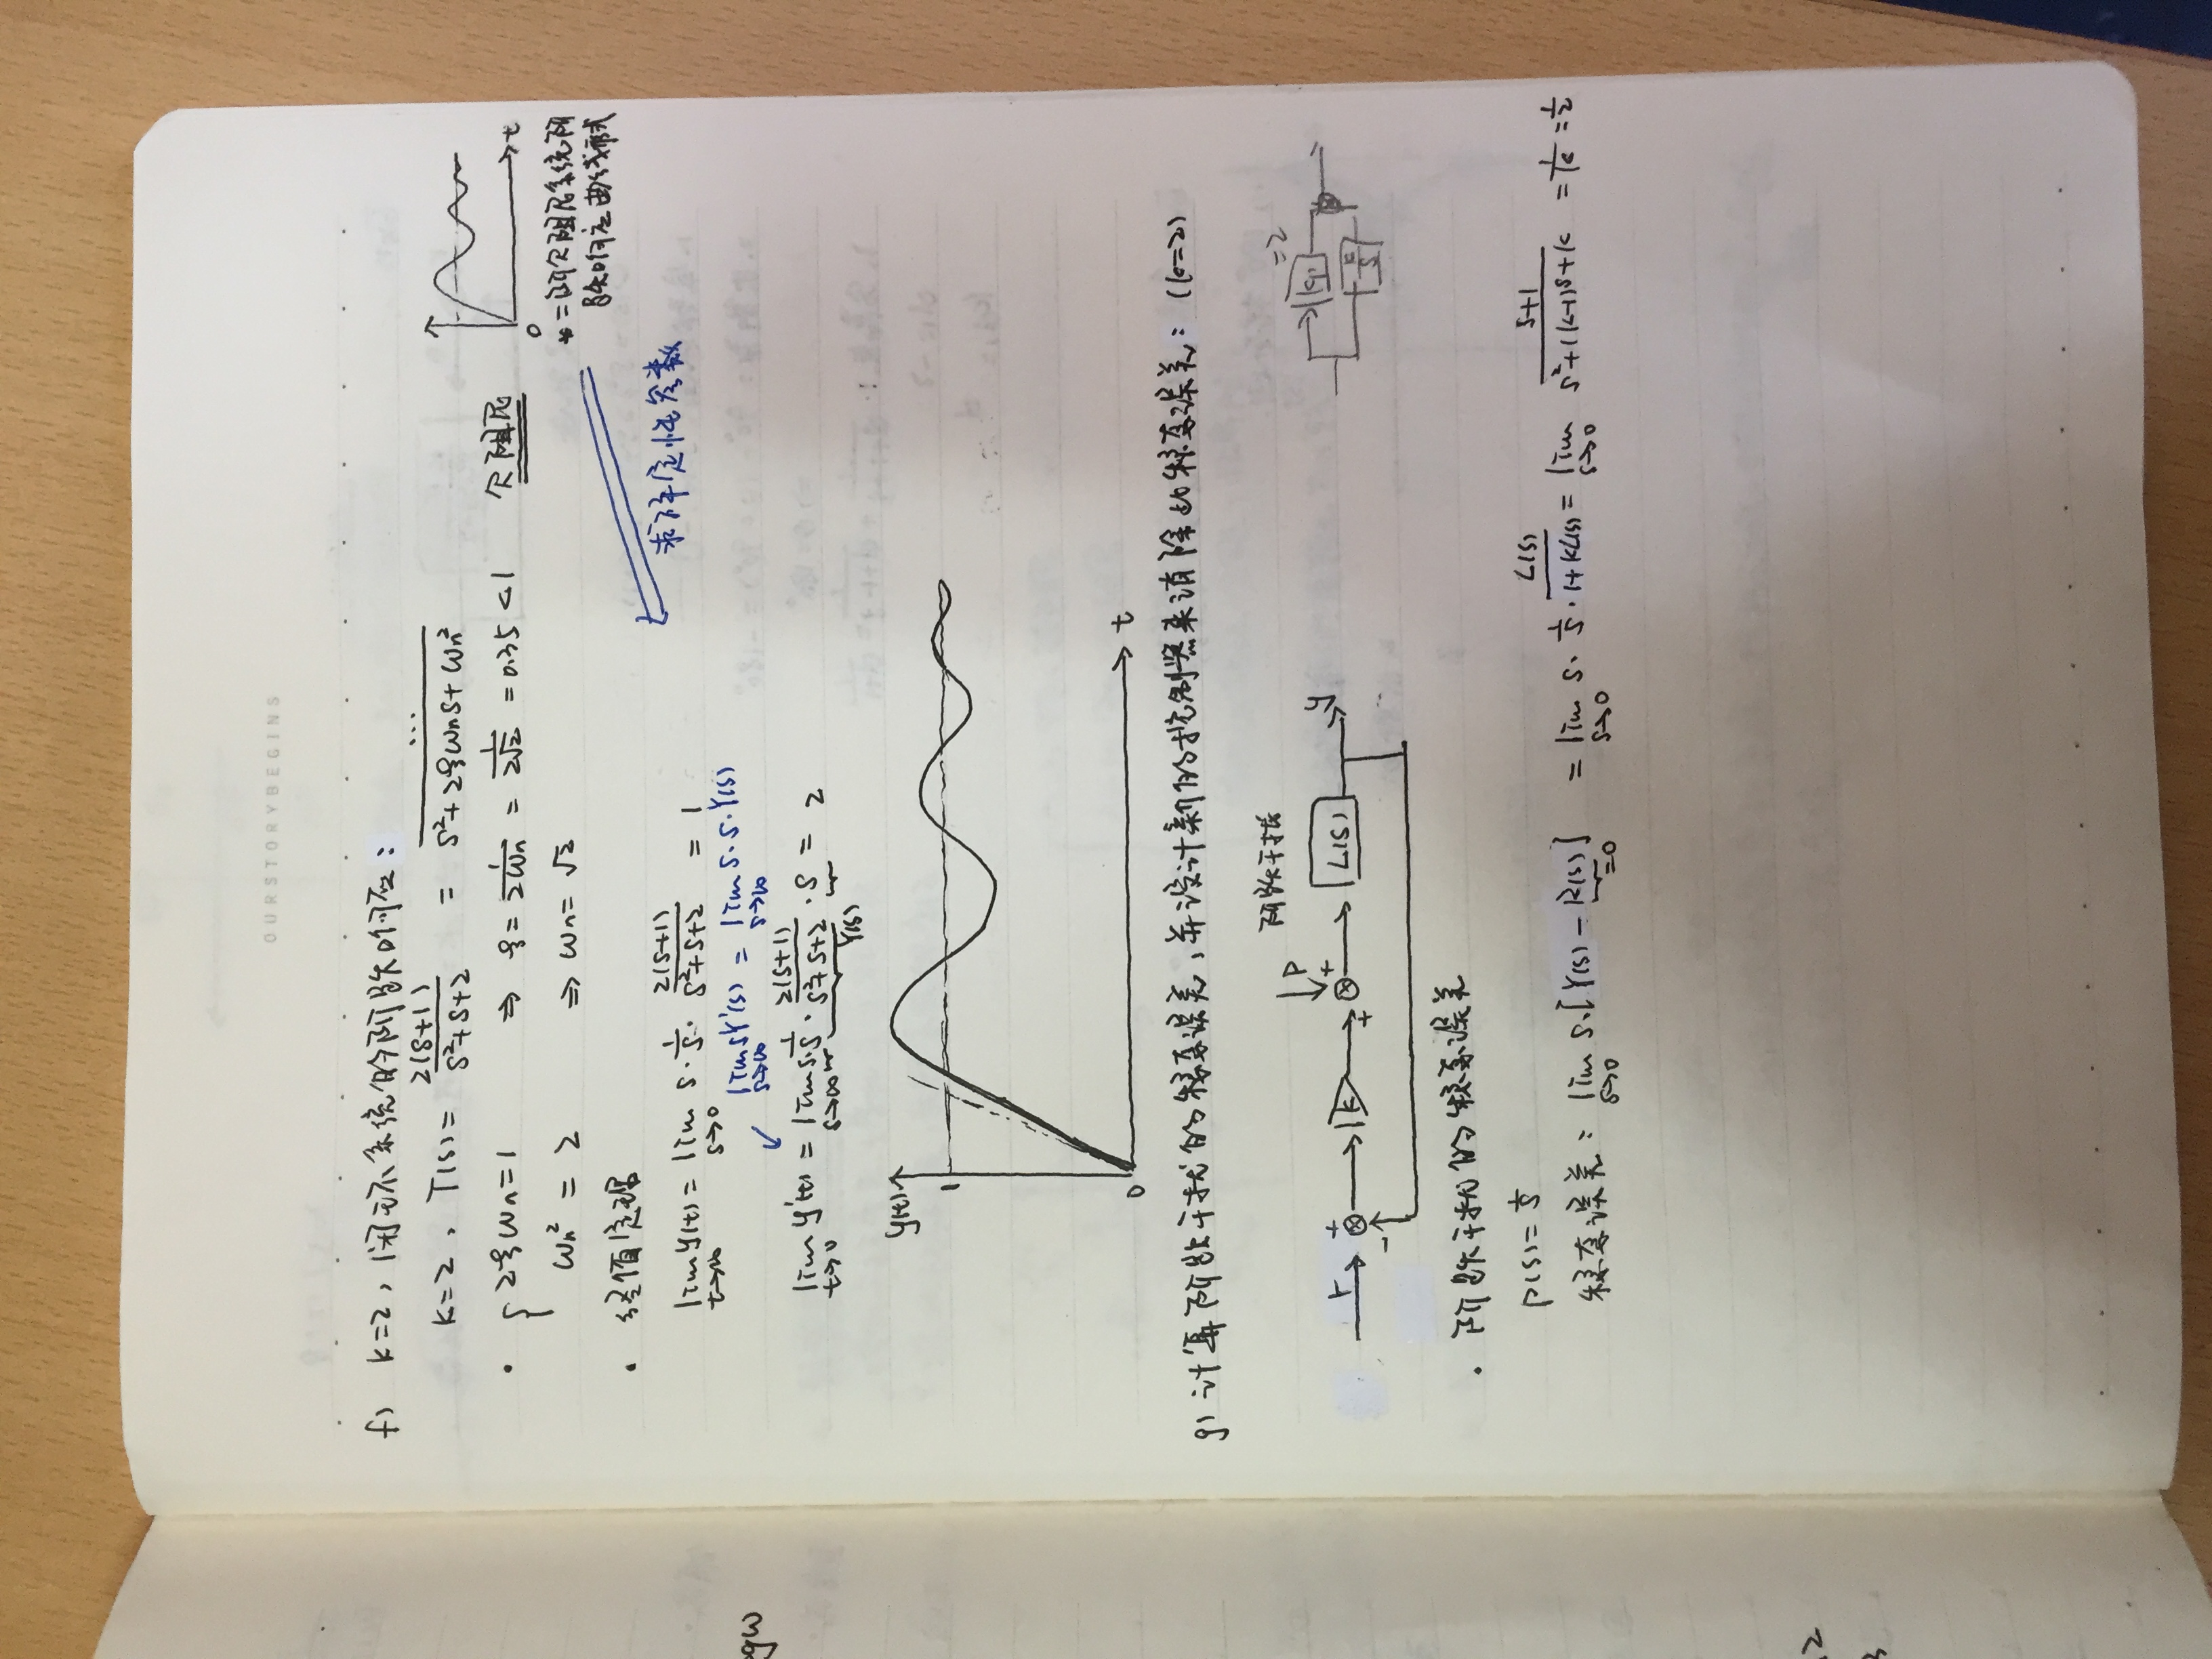 OURSTORYBEGINS
f) k=2, 闭环系统的阶跃响应:
k=2, T(s)= 2(s+1)/(s²+s+2) = .../(s²+2ξωns+ωn²)
t
0
· { 2ξωn=1 ⇒ ξ= 1/(2ωn) = 1/(2√2) = 0.35 <1 欠阻尼
ωn² = 2 ⇒ ωn= √2
二阶欠阻尼系统阶
跃响应曲线形式
· 终值定理
求解定性参数
lim t→∞ y(t) = lim s→0 s· 1/s · 2(s+1)/(s²+s+2) = 1
lim s→∞ sY'(s) = lim s→∞ s·s·Y(s)
lim t→0 y'(t) = lim s→∞ s· 1/s · 2(s+1)/(s²+s+2) · s = 2
Y(s)
y(t)
1
0
t
g) 计算阶跃干扰的稳态误差,并设计新的控制器来消除此稳态误差: (k=2)
阶跃干扰
P
r + - k + + L(s) y
=2
kp
k/s
· 阶跃干扰的稳态误差
P(s)= 1/s
稳态误差: lim s→0 s·[Y(s) - R(s)] = lim s→0 s· 1/s · L(s)/(1+kL(s)) = lim s→0 (s+1)/(s²+(k-1)s+k) = 1/k = 1/2
=0
gω
2
3